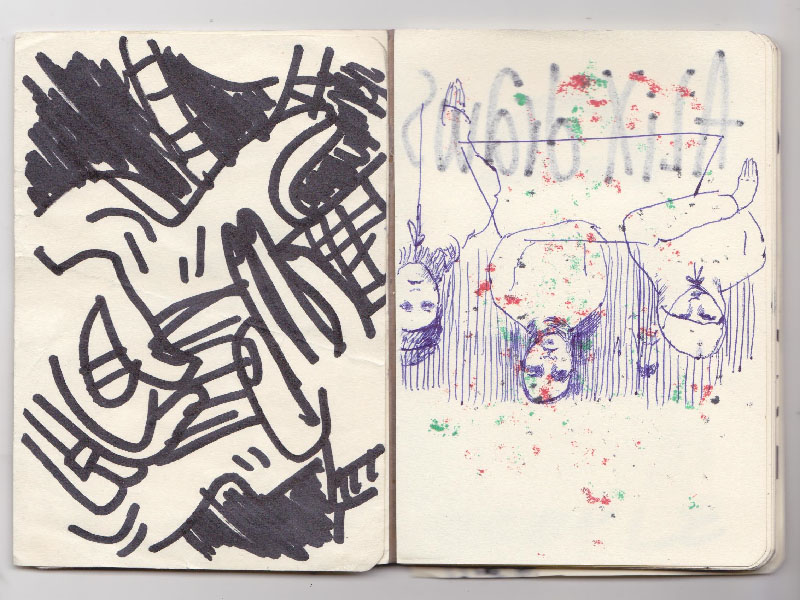 ALiX draws